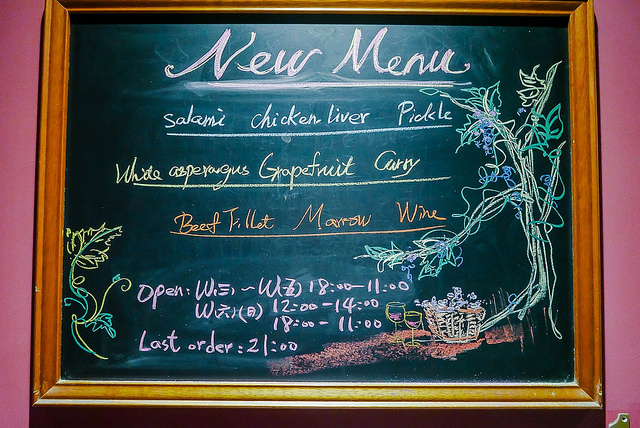 New Menu
Salami chicken liver Pickle
White asperagus Grapefruit Curry
Beef Fillet Marrow Wine
Open: W(三) ~ W(五) 18:00-11:00
W(六)(日) 12:00-14:00
18:00-11:00
Last order: 21:00